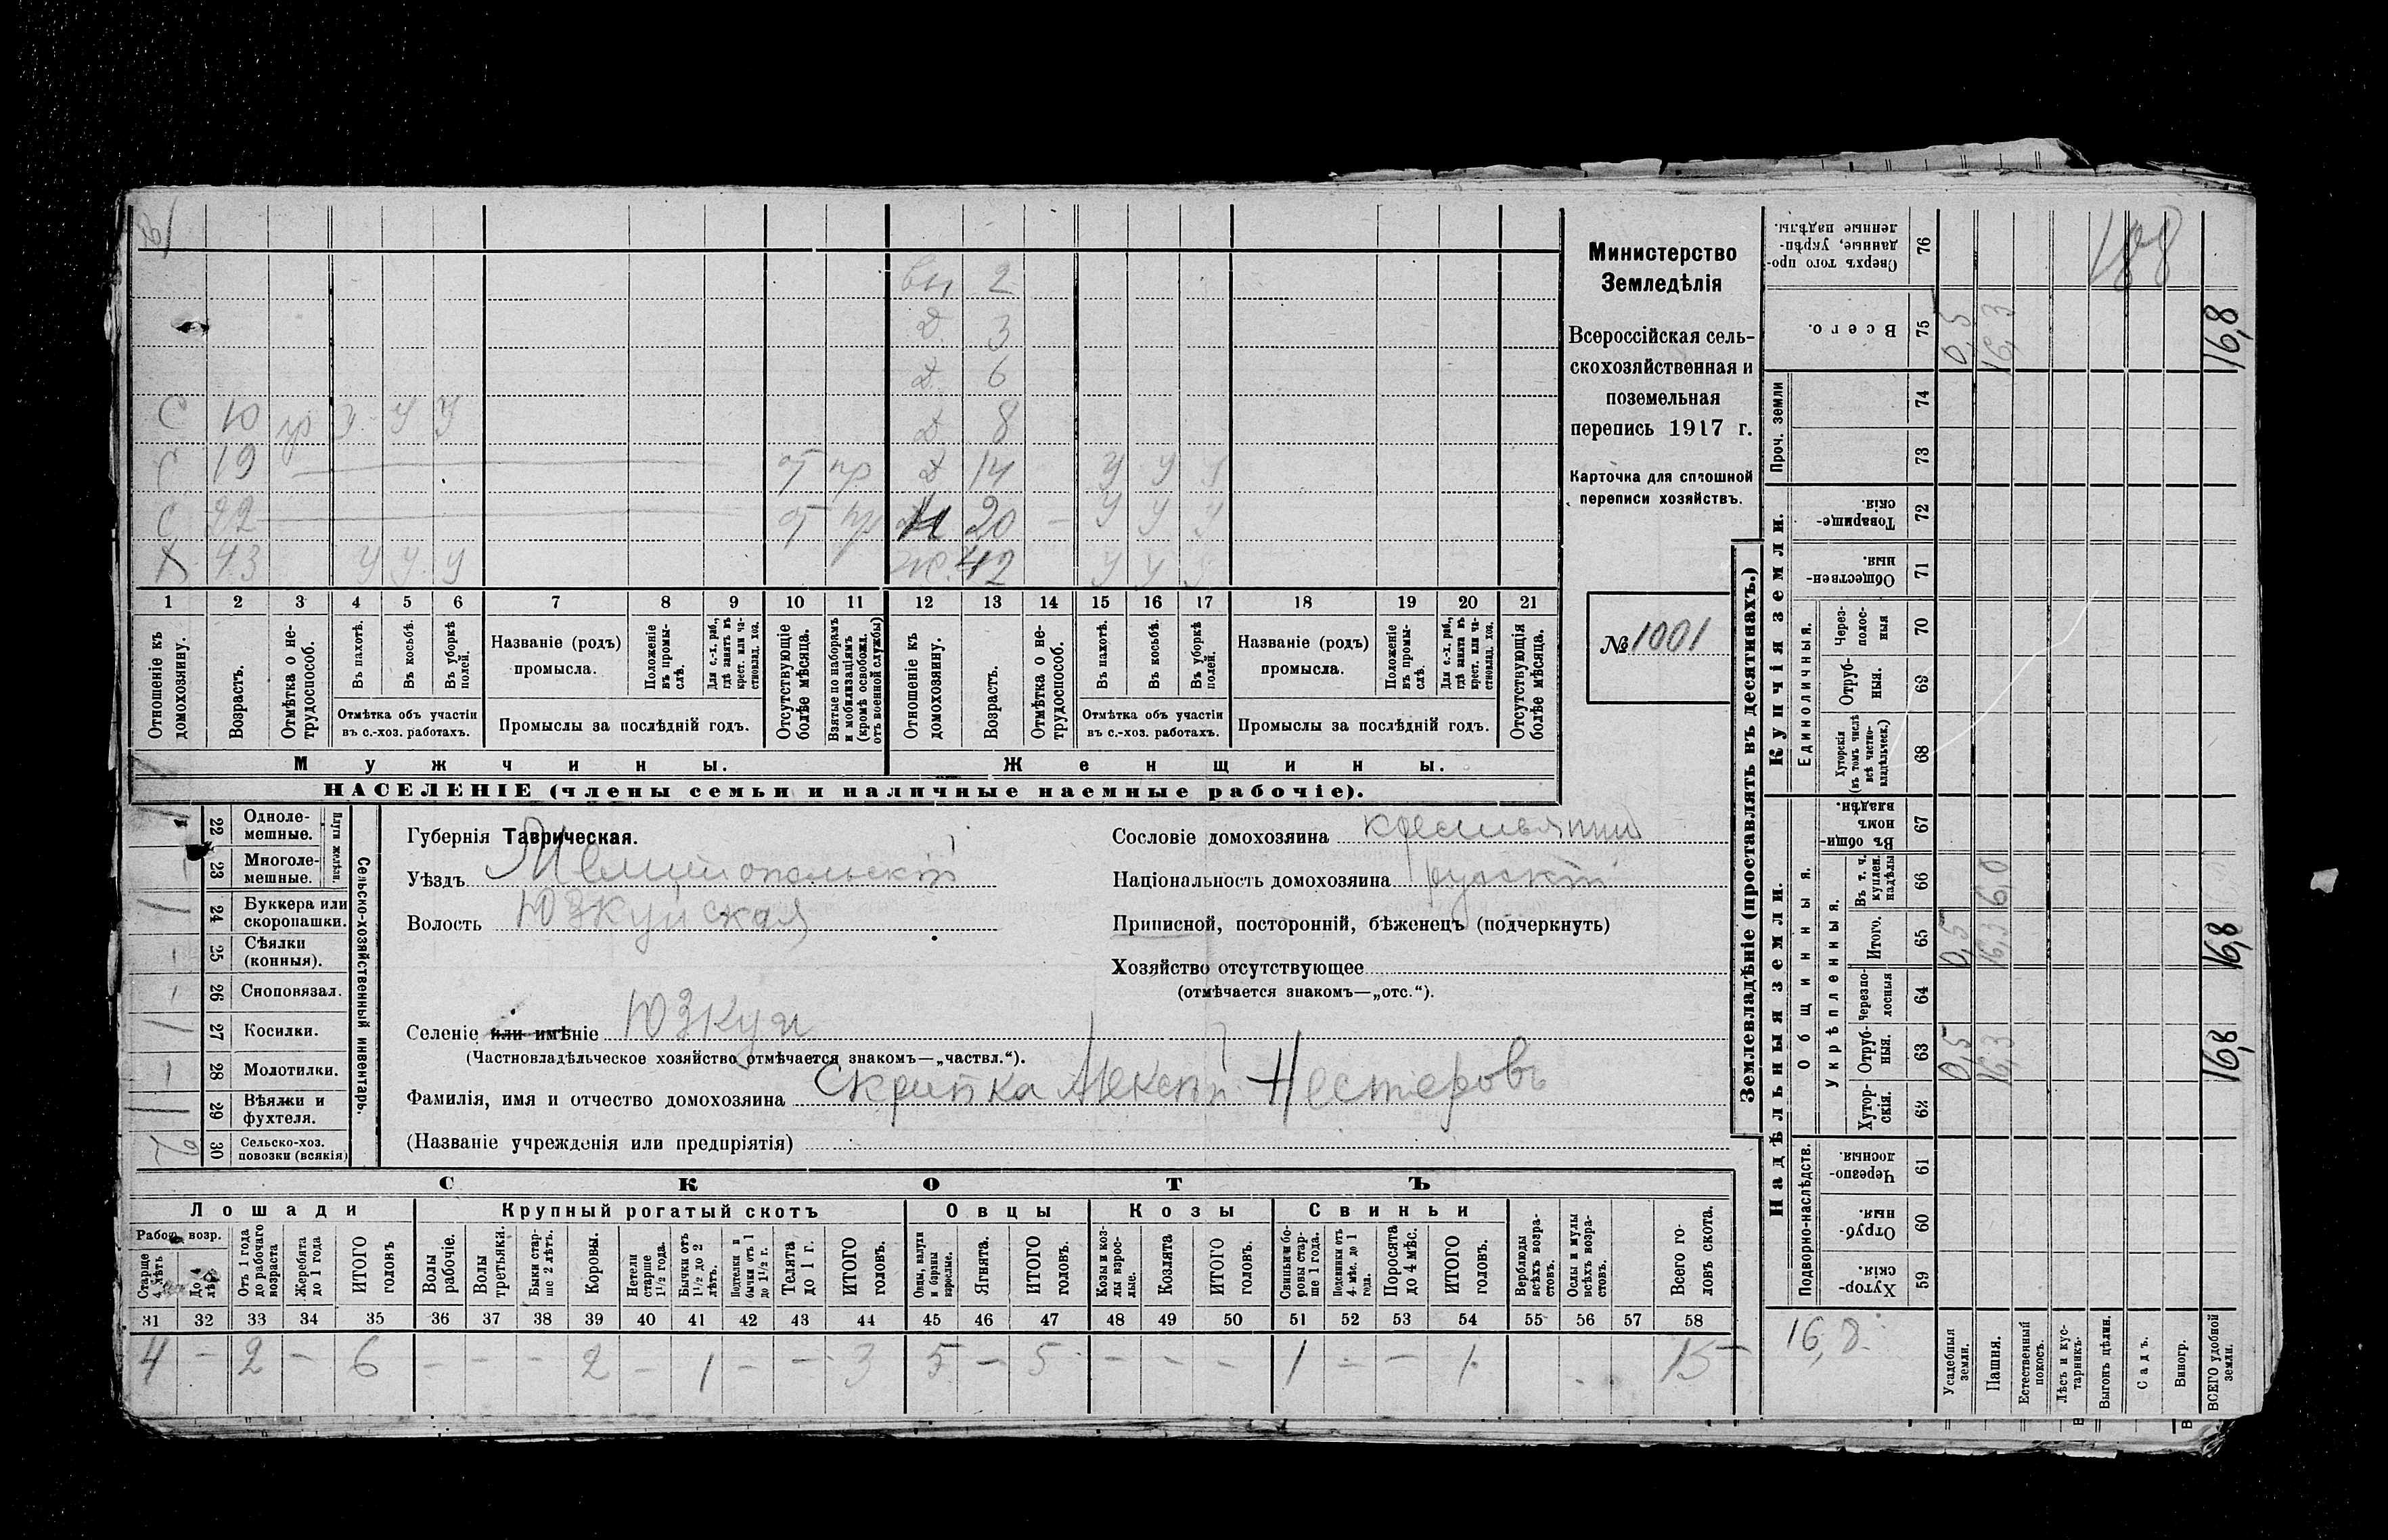 Министерство
Земледѣлія
Всероссійская сель-
скохозяйственная и
поземельная
перепись 1917 г.
Карточка для сплошной
переписи хозяйствъ.
№ 1001
вн 2
д. 3
д. 6
С 10 пр У У У д. 8
С 19 от пр. д 14 У У У
С 22 от пр 20 — У У У
Х 43 У У У ж. 42 У У У
1 2 3 4 5 6 7 8 9 10 11 12 13 14 15 16 17 18 19 20 21
Отношеніе къ домохозяину.
Возрастъ.
Отмѣтка о не-трудоспособ.
Въ пахотѣ.
Въ косьбѣ.
Въ уборкѣ полей.
Отмѣтка объ участіи
въ с.-хоз. работахъ.
Названіе (родъ)
промысла.
Положеніе въ промы-слѣ.
Для с.-х. раб., гдѣ занятъ въ крест. или ча-стновлад. хоз.
Промыслы за послѣдній годъ.
Отсутствующіе болѣе мѣсяца.
Взятые по наборамъ и мобилизаціямъ (кромѣ освобожд. отъ военной службы)
Отношеніе къ домохозяину.
Возрастъ.
Отмѣтка о не-трудоспособ.
Въ пахотѣ.
Въ косьбѣ.
Въ уборкѣ полей.
Отмѣтка объ участіи
въ с.-хоз. работахъ.
Названіе (родъ)
промысла.
Положеніе въ промы-слѣ.
Для с.-х. раб., гдѣ занята въ крест. или ча-стновлад. хоз.
Промыслы за послѣдній годъ.
Отсутствующія болѣе мѣсяца.
Мужчины. Женщины.
НАСЕЛЕНІЕ (члены семьи и наличные наемные рабочіе).
22 Одноле-мешные.
23 Многоле-мешные.
Плуги желѣзн.
24 Буккера или скоропашки.
25 Сѣялки (конныя).
26 Сноповязал.
27 Косилки.
28 Молотилки.
29 Вѣялки и фухтеля.
30 Сельско-хоз. повозки (всякія)
Сельско-хозяйственный инвентарь.
Губернія Таврическая.
Уѣздъ Мелитопольскій
Волость Юзкуйская
Селеніе или имѣніе Юзкуи
(Частновладѣльческое хозяйство отмѣчается знакомъ—„частвл.“).
Фамилія, имя и отчество домохозяина Скрипка Алексѣй Нестеровъ
(Названіе учрежденія или предпріятія)
Сословіе домохозяина крестьянин
Національность домохозяина русскій
Приписной, посторонній, бѣженецъ (подчеркнуть)
Хозяйство отсутствующее
(отмѣчается знакомъ—„отс.“).
СКОТЪ
Лошади Крупный рогатый скотъ Овцы Козы Свиньи
Рабоч. возр.
Старше 4 лѣтъ
До 4 лѣтъ
Отъ 1 года до рабочаго возраста
Жеребята до 1 года
ИТОГО головъ
Волы рабочіе.
Волы третьяки.
Быки стар-ше 2 лѣтъ.
Коровы.
Нетели старше 1½ года.
Бычки отъ 1½ до 2 лѣтъ.
Подтелки и бычки отъ 1 до 1½ г.
Телята до 1 г.
ИТОГО головъ.
Овцы, валухи и бараны взрослые.
Ягнята.
ИТОГО головъ.
Козы и коз-лы взрос-лые.
Козлята
ИТОГО головъ.
Свиньи и бо-ровы стар-ше 1 года.
Подсвинки отъ 4 мѣс. до 1 года.
Поросята до 4 мѣс.
ИТОГО головъ.
Верблюды всѣхъ возра-стовъ.
Ослы и мулы всѣхъ возра-стовъ.
Всего го-ловъ скота.
31 32 33 34 35 36 37 38 39 40 41 42 43 44 45 46 47 48 49 50 51 52 53 54 55 56 57 58
4 — 2 — 6 — — — 2 — 1 — — 3 5 — 5 — — — 1 — — 1 15
Землевладѣніе (проставлять въ десятинахъ.)
Надѣльныя земли. Купчія земли. Проч. земли
Подворно-наслѣдств.
Общинныя.
Укрѣпленныя.
Единоличныя.
Хутор-скія. 59
Отруб-ныя. 60
Черезпо-лосныя. 61
Хутор-скія. 62
Отруб-ныя. 63
Черезпо-лосныя 64
Итого. 65
Въ т. ч. куплен. надѣлы 66
Въ общин-номъ владѣн. 67
Хуторскія (въ томъ числѣ всѣ частно-владѣльческ.) 68
Отруб-ныя. 69
Через-полос-ныя 70
Обществен-ныя. 71
Товарище-скія. 72
73
74
Всего. 75
Сверхъ того про-данные, укрѣп-ленные надѣлы. 76
16,8
Усадебныя земли. 0,5 0,5 0,5
Пашня. 16,3 16,3 6,0 16,3
Естественный покосъ.
Лѣсъ и кус-тарникъ.
Выгонъ цѣлин.
Садъ.
Виногр.
ВСЕГО удобной земли. 16,8 16,8 16,8
188